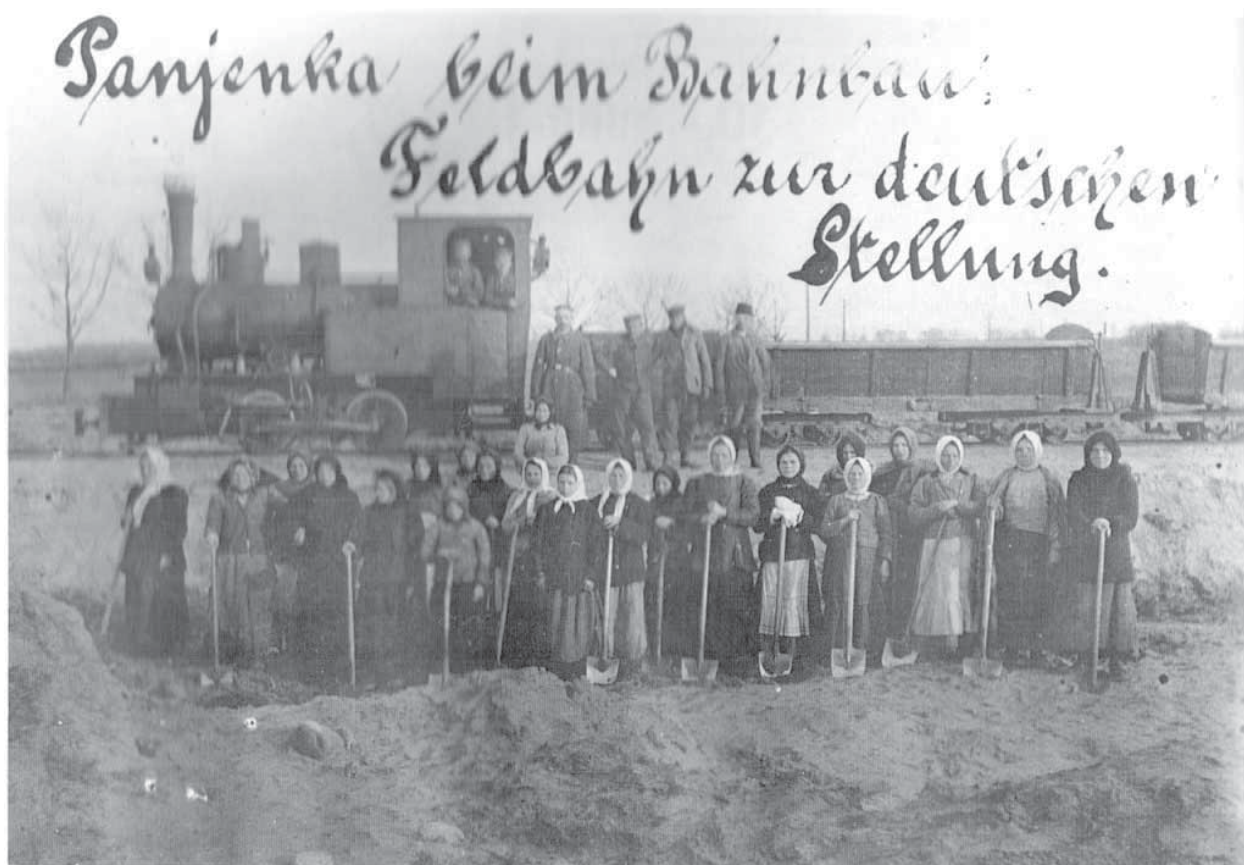 Panjenka beim Bahnbau.
Feldbahn zur deutschen
Stellung.